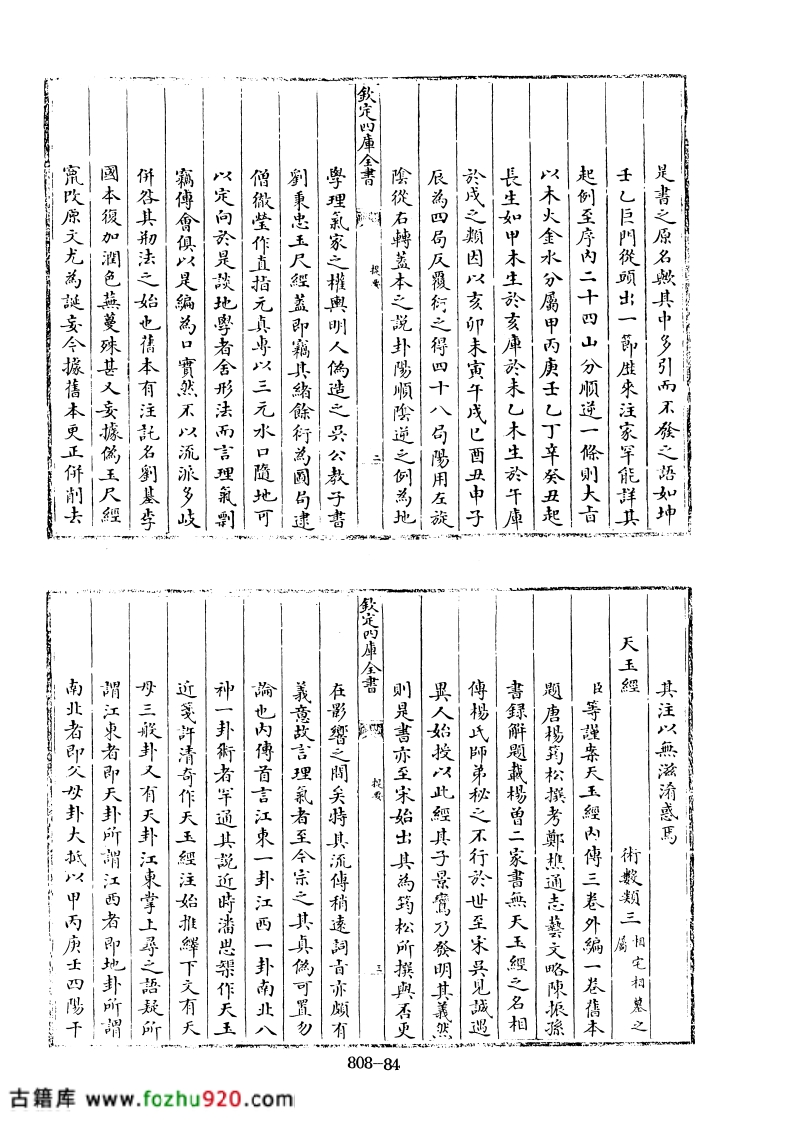 是書之原名歟其中多引而不發之語如坤
壬乙巨門從頭出一節歴來注家罕能詳其
起例至序内二十四山分順逆一條則大㫖
以木火金水分屬甲丙庚壬乙丁辛癸丑起
長生如甲木生於亥庫於未乙木生於午庫
於戌之類因以亥卯未寅午戌巳酉丑申子
辰為四局反覆衍之得四十八局陽用左旋
陰從右轉葢本之説卦陽順隂逆之例為地
欽定四庫全書
提要
二
學理氣家之權輿明人偽造之吳公教子書
劉秉忠玉尺經葢即竊其緒餘衍為圖局逮
僧徹瑩作直指元真專以三元水口隨地可
以定向於是談地學者舍形法而言理氣剽
竊傅會俱以是編為口實然不以流派多岐
併咎其剏法之始也舊本有注託名劉基李
國本復加潤色蕪蔓殊甚又妄據偽玉尺經
竄改原文尤為誕妄今據舊本更正併削去
其注以無滋淆惑焉
天玉經
術數類三 相宅相墓之屬
臣等謹案天玉經内傳三卷外編一卷舊本
題唐楊筠松撰考鄭樵通志藝文略陳振孫
書録解題載楊曾二家書無天玉經之名相
傳楊氏師弟秘之不行於世至宋吳見誠遇
異人始授以此經其子景鸞乃發明其義然
則是書亦至宋始出其為筠松所撰與否更
欽定四庫全書
提要
三
在影響之間矣特其流傳稍遠詞㫖亦頗有
義意故言理氣者至今宗之其真偽可置勿
論也内傳首言江東一卦江西一卦南北八
神一卦術者罕通其説近時潘思榘作天玉
近箋許清奇作天玉經注始推繹下文有天
母三般卦又有天卦江東掌上尋之語疑所
謂江東者即天卦所謂江西者即地卦所謂
南北者即父母卦大抵以甲丙庚壬四陽干
808-84
古籍库 www.fozhu920.com